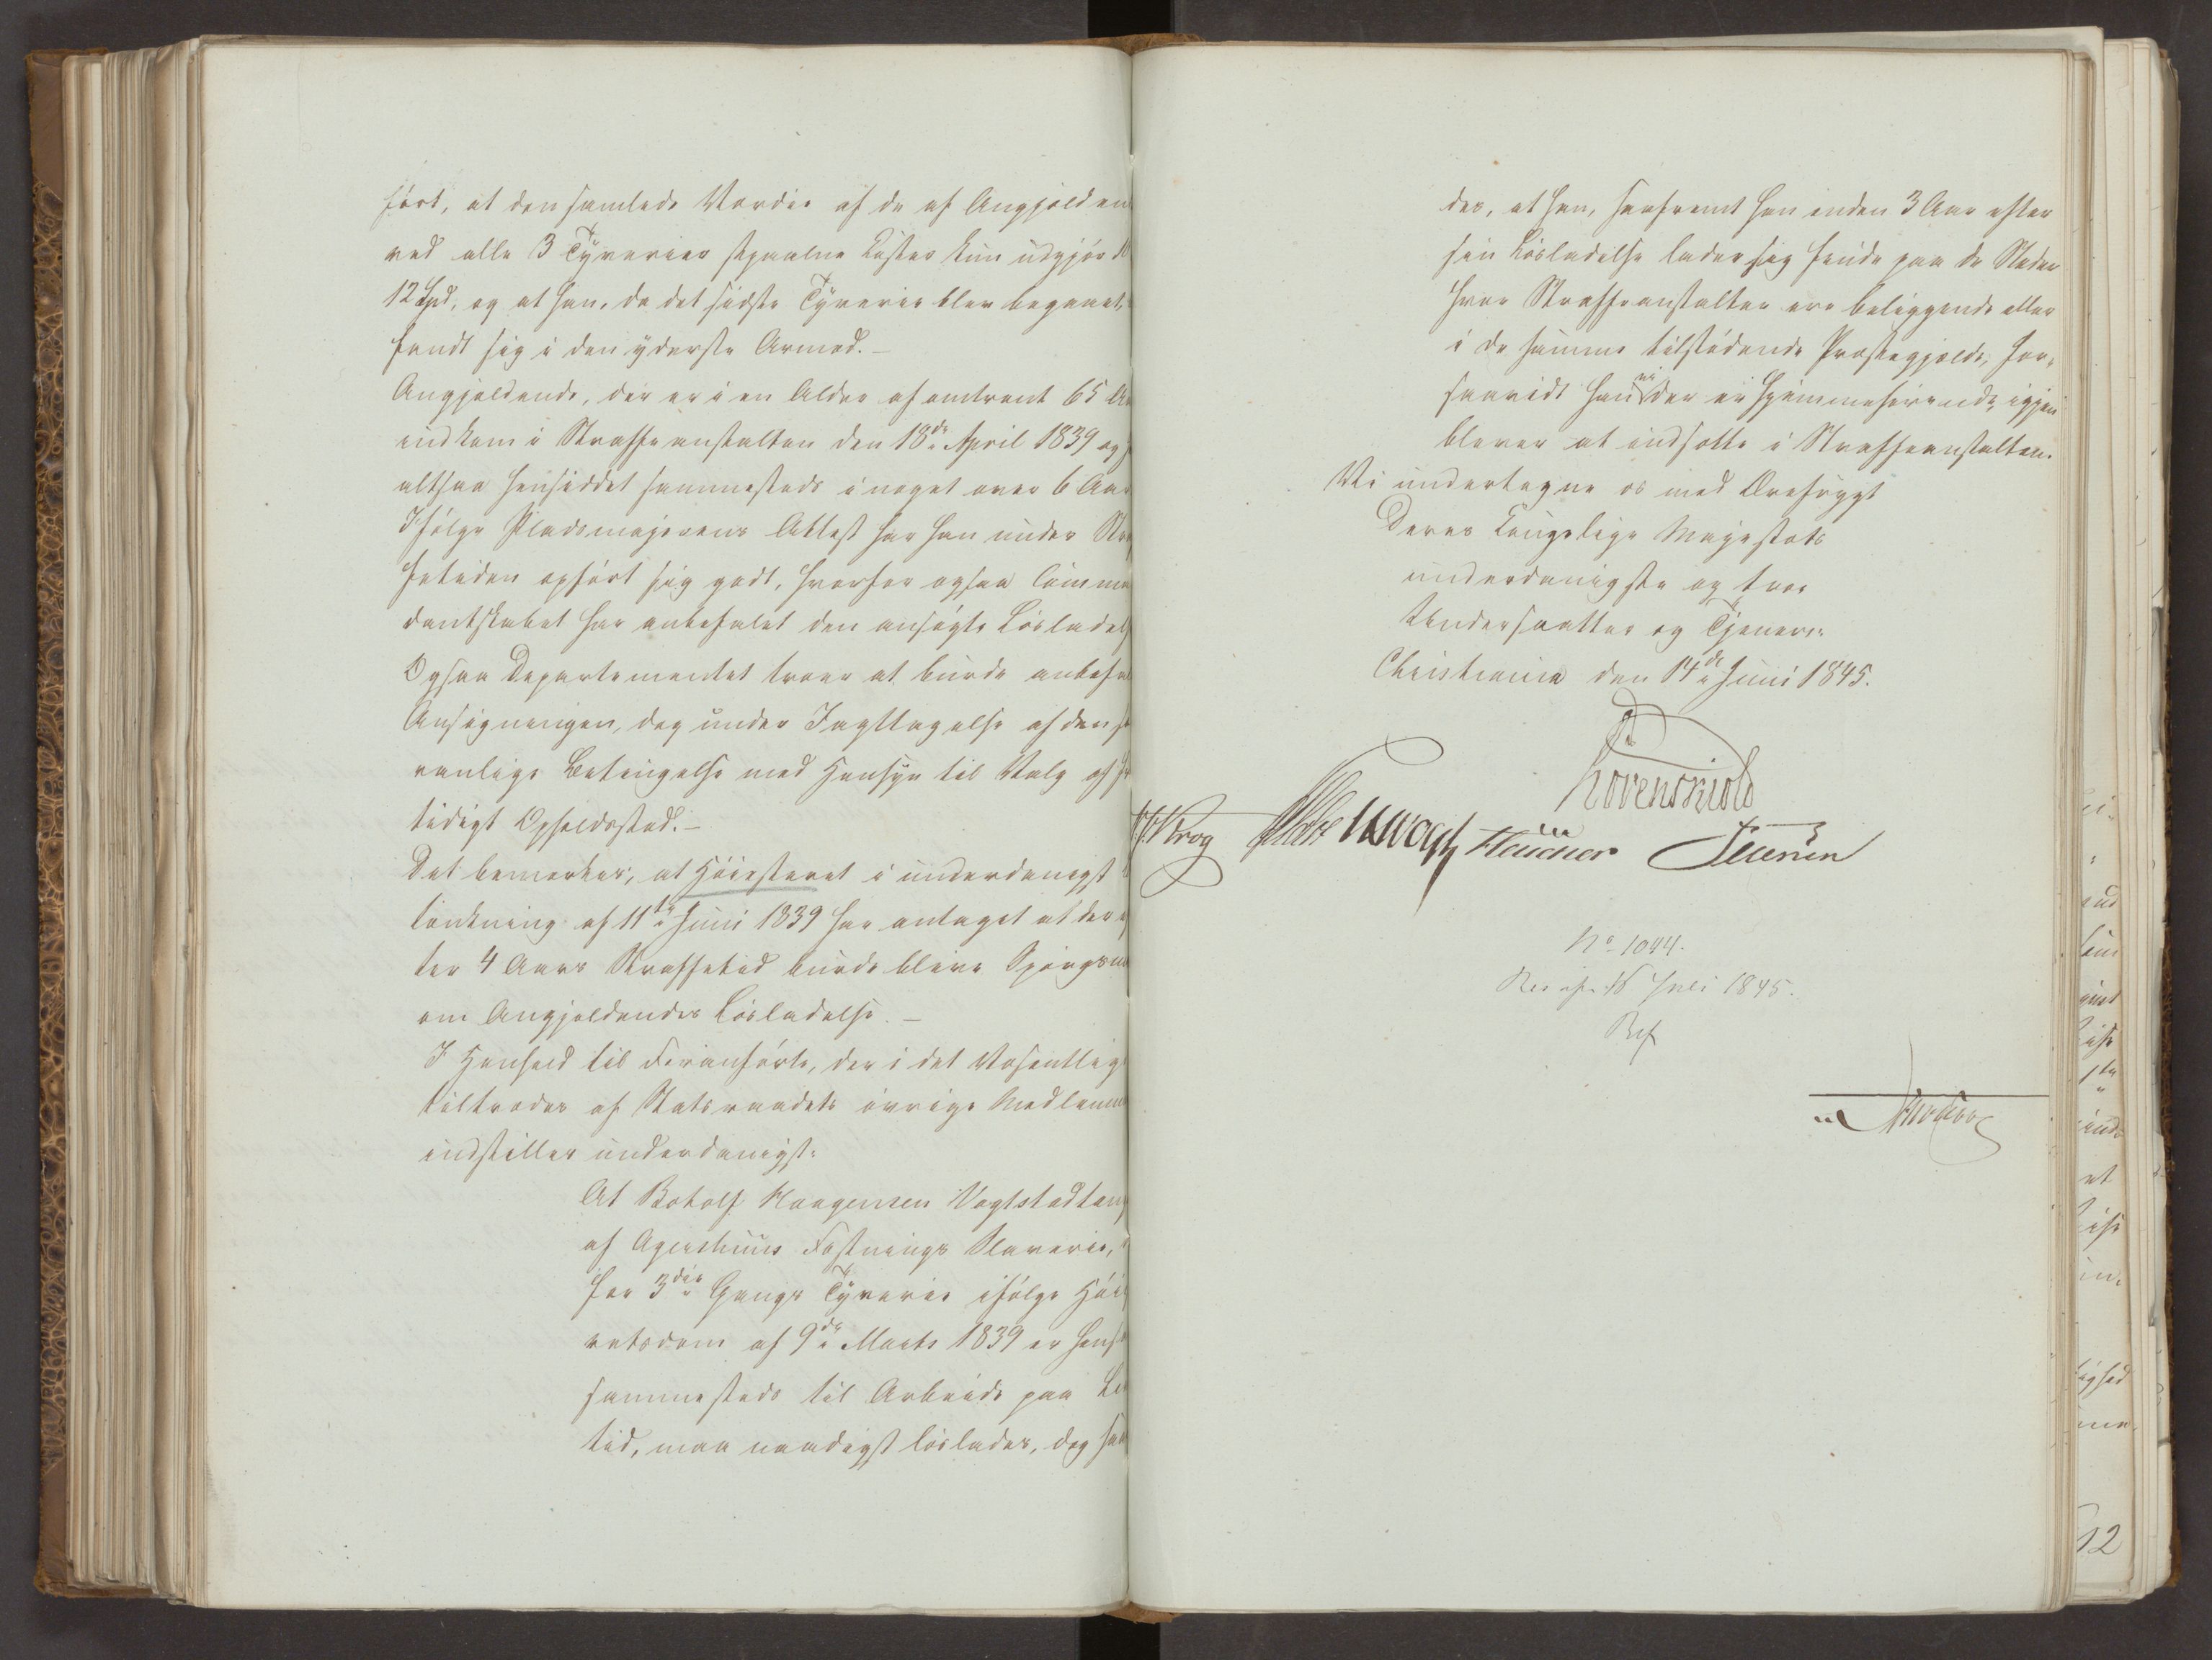 ført, at den samlede Værdie af de af Angjælden
ved alle 3 Tyverier stjaalne Koster kun udgjørd
12 Spd, og at han, da det sidste Tyverie blev begaaet,
fandt sig i den yderste Armod.–
Angjældende, der er i en Alder af omtrent 65 Aa
indkom i Straffeanstalten den 18de April 1839 og
altsaa hensiddet sammesteds i noget over 6 Aar
Ifølge Pladsmajorens Attest har han under Stra
fetiden opført sig godt, hvorfor ogsaa Comman
dantskabet har anbefalet den ansøgte Løsladels
Ogsaa Departementet troer at burde anbefal
Ansøgningen, dog under Iagttagelse af den s
vanlige Betingelse med Hensyn til Valg af fr
tidigt Opholdssted.–
Det bemærkes, at Høiesteret i underdanigst
tænkning af 11te Juni 1839 har antaget at der e
ter 4 Aars Straffetid burde blive Spørgsm
om Angjældendes Løsladelse.–
I Henhold til Foranførte, der i det Væsentlig
tiltrædes af Statsraadets øvrige Medlemm
indstilles underdanigst:
At Botolf Haagensen Vogtstadtang
af Agershuus Festnings Slaverie,
for 3die Gangs Tyverie ifølge Høie
retsdom af 9de Marts 1839 er hens
sammesteds til Arbeide paa Li
tid, maa naadigst løslades, dog saa
des, at han, saafremt han inden 3 Aar efter
sin Løsladelse lader sig finde paa de Steder
hvor Straffeanstalter ere beliggende eller
i de samme tilstødende Præstegjælde, for,
saavidt han ei der er hjemmehørende, igjen
bliver at indsætte i Straffeanstalten.
Vi undertegne os med Ærefrygt
Deres Kongelige Majestæts
underdanigste og troe
Undersaatter og Tjenere:
Christiania den 14de Juni 1845.
Løvenskiold
Krog Vogt Petersen
No 1044.
Res af 16 Juli 1845.